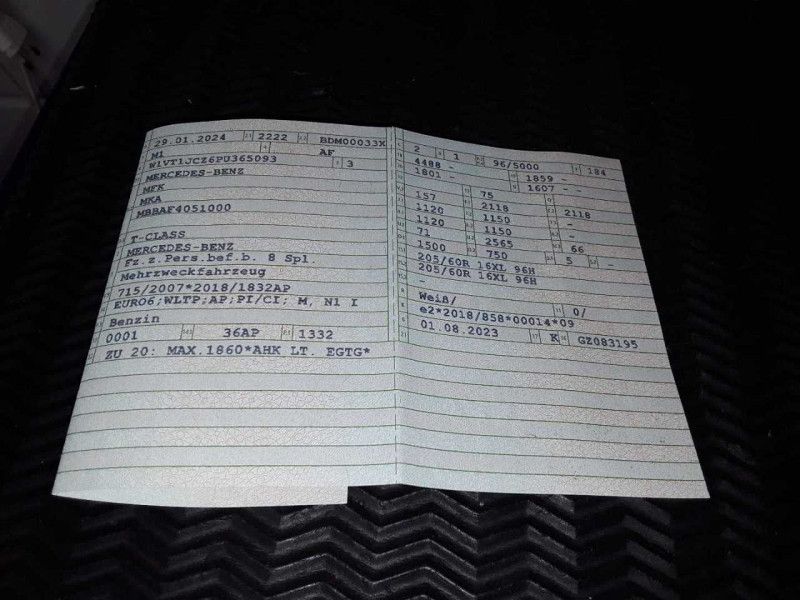 29.01.2024 2222 BDM00033X
M1 AF
W1VT1JCZ6PU365093 3
MERCEDES-BENZ
MFK
MKA
MBBAF4051000
T-CLASS
MERCEDES-BENZ
Fz.z.Pers.bef.b. 8 Spl.
Mehrzweckfahrzeug
715/2007*2018/1832AP
EURO6;WLTP;AP;PI/CI; M, N1 I
Benzin
0001 36AP 1332
ZU 20: MAX.1860*AHK LT. EGTG*
2 1 96/5000 184
4488 1859 -
1801 - 1607 - -
157 75
1120 2118 2118
1120 1150
71 1150
1500 2565 66
205/60R 16XL 96H 750 5 -
205/60R 16XL 96H
-
Weiß/
e2*2018/858*00014*09 0/
01.08.2023 K GZ083195